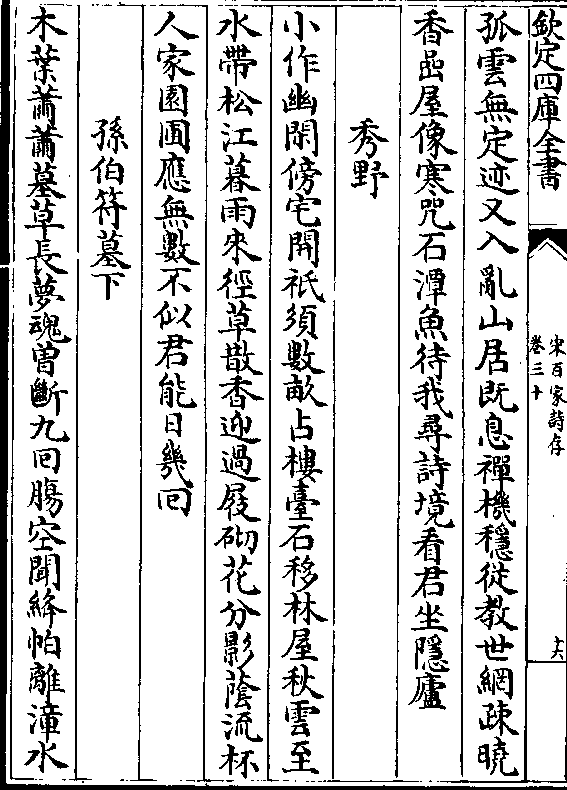 欽定四庫全書
宋百家詩存
卷三十
十六
孤雲無定迹又入亂山居既息禪機穩從教世網疎曉
香函屋像寒咒石潭魚待我尋詩境看君坐隱廬
秀野
小作幽閑傍宅開祇須數畝占樓臺石移林屋秋雲至
水帶松江暮雨來徑草散香迎過屐砌花分影蔭流杯
人家園圃應無數不似君能日幾囘
孫伯符墓下
木葉蕭蕭墓草長夢魂曽斷九囘膓空聞絳帕離漳水